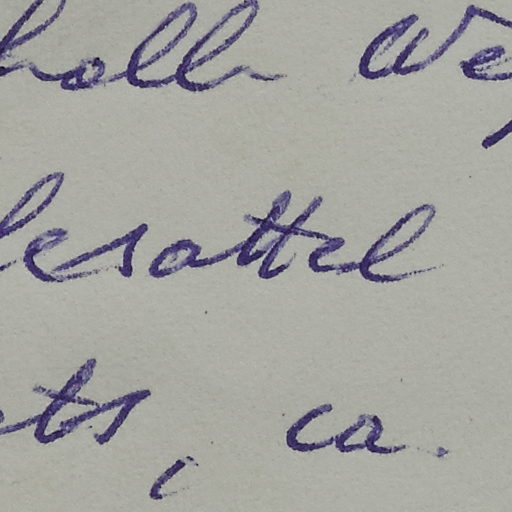 halb We
lesattel
ts, ca.